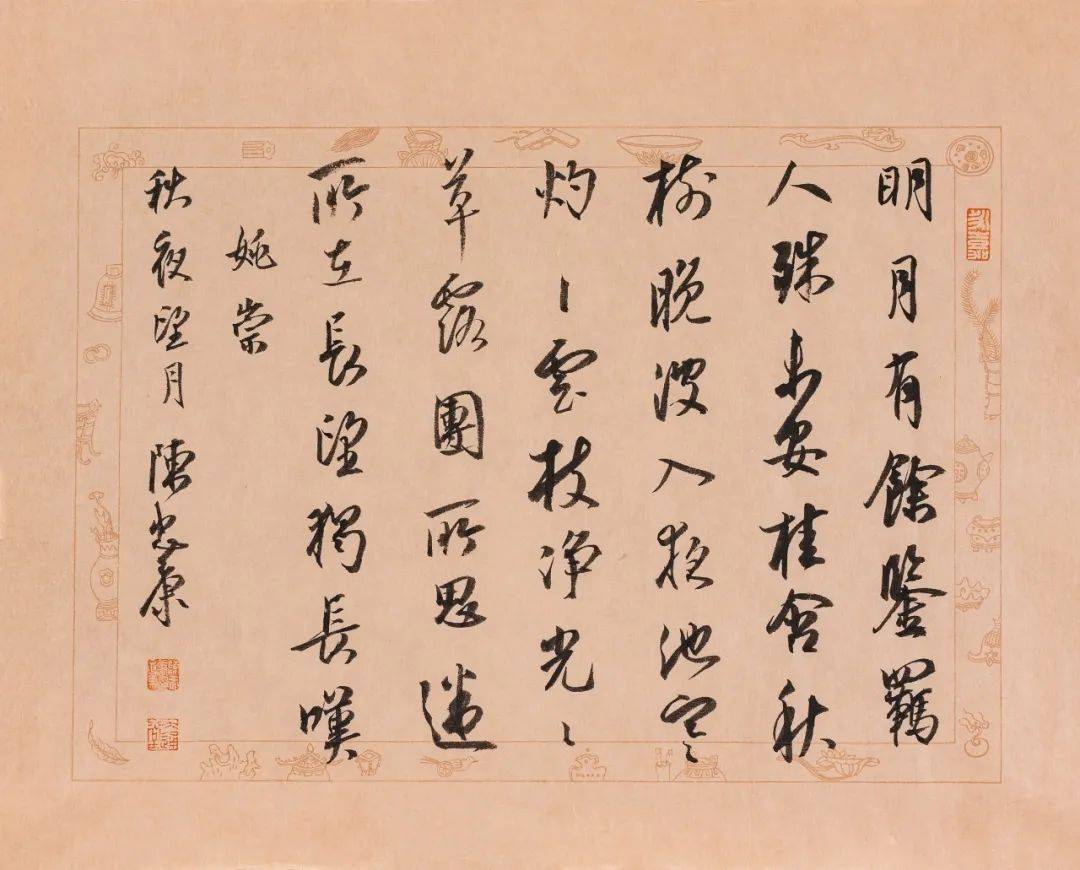 永嘉
明月有餘鑒羈
人殊未安桂含秋
樹晚波入夜池寒
灼〻雲枝净光〻
草露團所思迷
所在長望獨長嘆
姚崇
秋夜望月 陳忠康